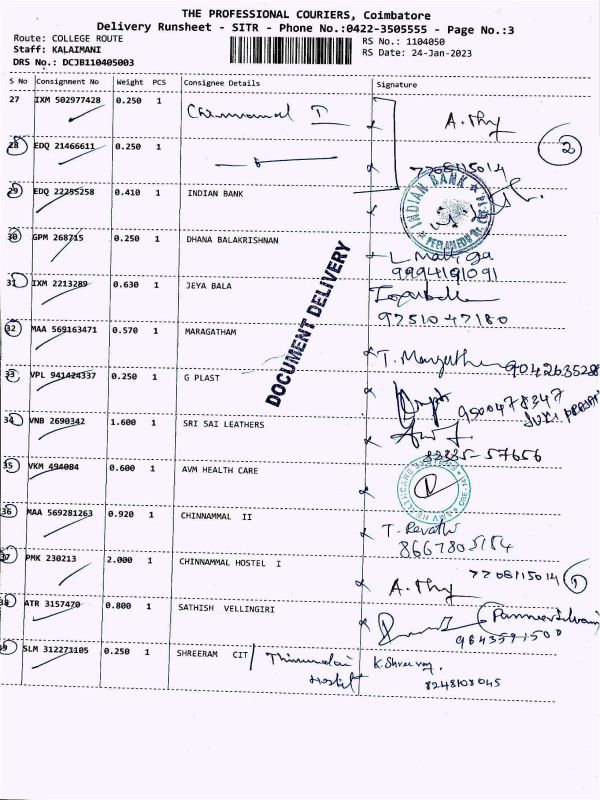 THE PROFESSIONAL COURIERS, Coimbatore
Delivery Runsheet - SITR - Phone No.:0422-3505555 - Page No.:3
Route: COLLEGE ROUTE
Staff: KALAIMANI
DRS No.: DCJB110405003
RS No.: 1104050
RS Date: 24-Jan-2023
S No Consignment No Weight PCS Consignee Details Signature
27 IXM 502977428 0.250 1 Chinnamal I A. Thy
28 EDQ 21466611 0.250 1 7708115014
2
29 EDQ 22255258 0.410 1 INDIAN BANK
INDIAN BANK
30 GPM 268715 0.250 1 DHANA BALAKRISHNAN
9994191091
31 IXM 2213289 0.630 1 JEYA BALA
9751047180
32 MAA 569163471 0.570 1 MARAGATHAM
9042635288
DOCUMENT DELIVERY
33 VPL 941424337 0.250 1 G PLAST
9500478347
34 VNB 2690342 1.600 1 SRI SAI LEATHERS
57656
35 VKM 494084 0.600 1 AVM HEALTH CARE
36 MAA 569281263 0.920 1 CHINNAMMAL II
T. Revathi
8667805154
37 PMK 230213 2.000 1 CHINNAMMAL HOSTEL I A. Thy
7708115014 1
38 ATR 3157470 0.800 1 SATHISH VELLINGIRI
39 SLM 312271105 0.250 1 SHREERAM CIT/ Thirumalai Hostel
K. Shreeraj.
8248108045